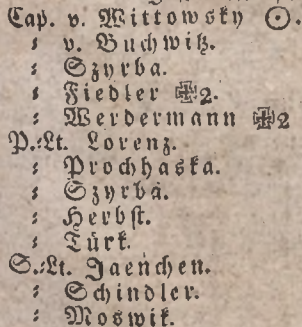 Cap. v. Wittowsky ☉.
⸗ v. Buchwitz.
⸗ Szyrba.
⸗ Fiedler ✠2.
⸗ Werdermann ✠2
P.⸗Lt. Lorenz.
⸗ Prochhaska.
⸗ Szyrba.
⸗ Herbst.
⸗ Türk.
S.⸗Lt. Jaenchen.
⸗ Schindler.
⸗ Moswik.